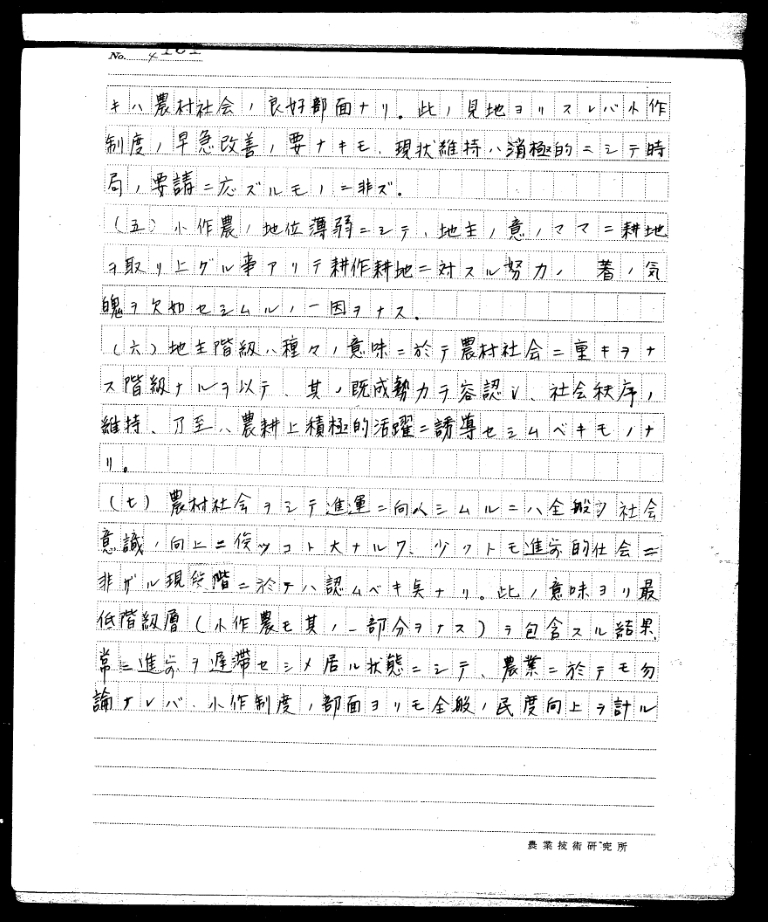 No. 4
キハ農村社会ノ良好部面ナリ。此ノ見地ヨリスレバ小作
制度ノ早急改善ノ要ナキモ、現状維持ハ消極的ニシテ時
局ノ要請ニ応ズルモノニ非ズ。
(五)小作農ノ地位薄弱ニシテ、地主ノ意ノママニ耕地
ヲ取リ上グル事アリテ耕作耕地ニ対スル努力ノ 著ノ気
魄ヲ欠如セシムルノ一因ヲナス。
(六)地主階級ハ種々ノ意味ニ於テ農村社会ニ重キヲナ
ス階級ナルヲ以テ、其ノ既成勢力ヲ容認シ、社会秩序ノ
維持、乃至ハ農耕上積極的活躍ニ誘導セシムベキモノナ
リ。
(七)農村社会ヲシテ進運ニ向ハシムルニハ全般ノ社会
意識ノ向上ニ俟ツコト大ナルワ、少クトモ進歩的社会ニ
非ザル現段階ニ於テハ認ムベキ点ナリ。此ノ意味ヨリ最
低階級層(小作農モ其ノ一部分ヲナス)ヲ包含スル結果、
常ニ進歩ヲ遅滞セシメ居ル状態ニシテ、農業ニ於テモ勿
論ナレバ、小作制度ノ部面ヨリモ全般ノ民度向上ヲ計ル
農業技術研究所